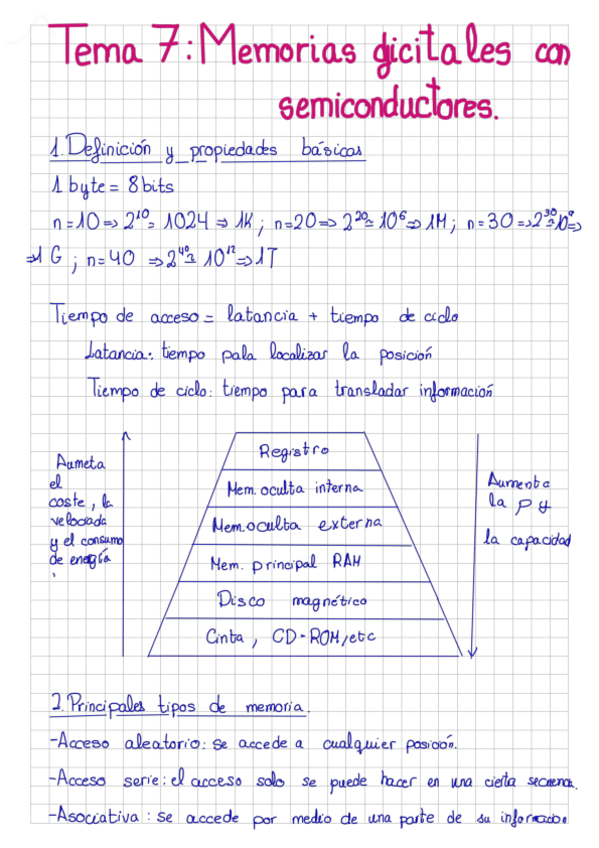 Tema 7: Memorias digitales con
semiconductores.
1. Definición y propiedades básicas
1 byte = 8 bits
n=10 => 2¹⁰ = 1024 => 1K ; n=20 => 2²⁰ ≃ 10⁶ => 1M ; n=30 => 2³⁰ ≃ 10⁹ =>
=> 1 G ; n=40 => 2⁴⁰ ≃ 10¹² => 1T
Tiempo de acceso = latancia + tiempo de ciclo
Latancia: tiempo pala localizar la posición
Tiempo de ciclo: tiempo para transladar información
Aumeta
el
coste, la
velociada
y el consumo
de energía
Registro
Mem. oculta interna
Mem. oculta externa
Mem. principal RAM
Disco magnético
Cinta, CD-ROM, etc
Aumenta
la p y
la capacidad
2. Principales tipos de memoria.
-Acceso aleatorio: se accede a cualquier posición.
-Acceso serie: el acceso solo se puede hacer en una cierta secuencia.
-Asociativa: se accede por medio de una parte de su informacion